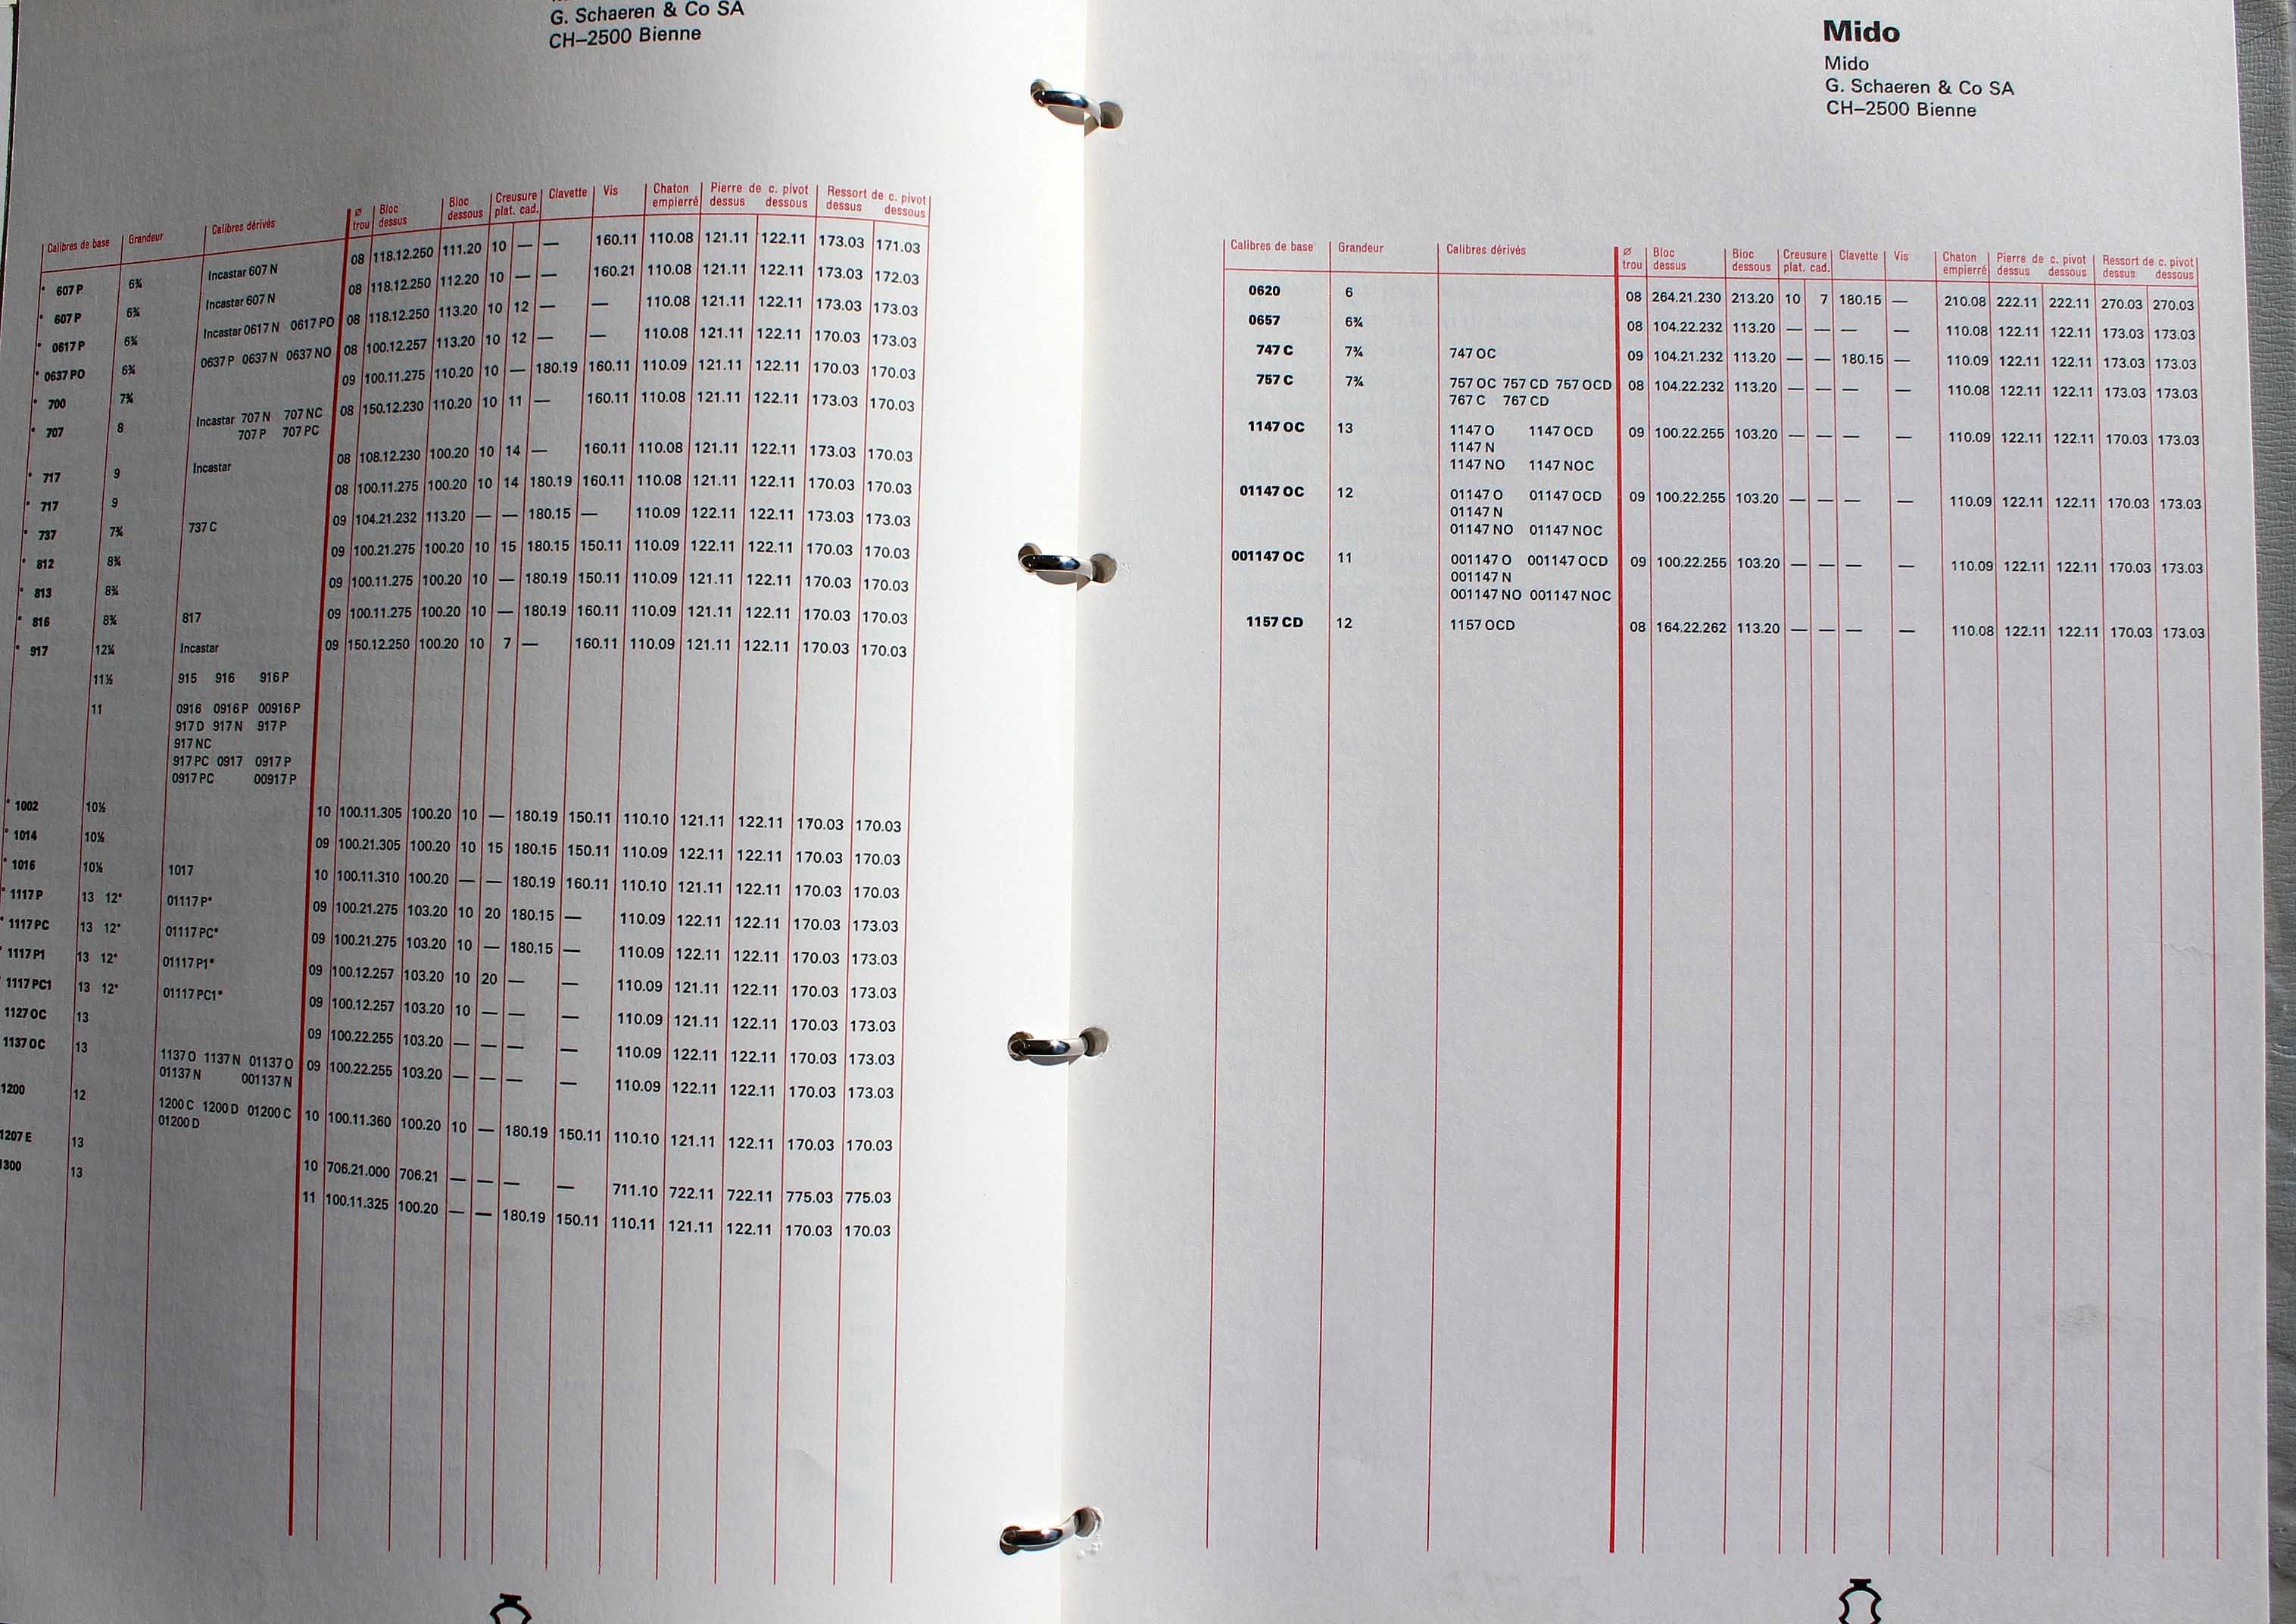 G. Schaeren & Co SA
CH–2500 Bienne
Calibres de base Grandeur Calibres dérivés ø trou Bloc dessus Bloc dessous Creusure plat. cad. Clavette Vis Chaton empierré Pierre de c. pivot dessus dessous Ressort de c. pivot dessus dessous
* 607 P 6¾ Incastar 607 N 08 118.12.250 111.20 10 — — 160.11 110.08 121.11 122.11 173.03 171.03
* 607 P 6¾ Incastar 607 N 08 118.12.250 112.20 10 — — 160.21 110.08 121.11 122.11 173.03 172.03
* 0617 P 6¾ Incastar 0617 N 0617 PO 08 118.12.250 113.20 10 12 — — 110.08 121.11 122.11 173.03 173.03
* 0637 PO 6¾ 0637 P 0637 N 0637 NO 08 100.12.257 113.20 10 12 — — 110.08 121.11 122.11 170.03 173.03
* 700 7¾ 09 100.11.275 110.20 10 — 180.19 160.11 110.09 121.11 122.11 170.03 170.03
* 707 8 Incastar 707 N 707 NC 08 150.12.230 110.20 10 11 — 160.11 110.08 121.11 122.11 173.03 170.03
707 P 707 PC
* 717 9 Incastar 08 108.12.230 100.20 10 14 — 160.11 110.08 121.11 122.11 173.03 170.03
* 717 9 08 100.11.275 100.20 10 14 180.19 160.11 110.08 121.11 122.11 170.03 170.03
* 737 7¾ 737 C 09 104.21.232 113.20 — — 180.15 — 110.09 122.11 122.11 173.03 173.03
* 812 8¾ 09 100.21.275 100.20 10 15 180.15 150.11 110.09 122.11 122.11 170.03 170.03
* 813 8¾ 09 100.11.275 100.20 10 — 180.19 150.11 110.09 121.11 122.11 170.03 170.03
* 816 8¾ 817 09 100.11.275 100.20 10 — 180.19 160.11 110.09 121.11 122.11 170.03 170.03
* 917 12¼ Incastar 09 150.12.250 100.20 10 7 — 160.11 110.09 121.11 122.11 170.03 170.03
11½ 915 916 916 P
11 0916 0916 P 00916 P
917 D 917 N 917 P
917 NC
917 PC 0917 0917 P
0917 PC 00917 P
* 1002 10½ 10 100.11.305 100.20 10 — 180.19 150.11 110.10 121.11 122.11 170.03 170.03
* 1014 10½ 09 100.21.305 100.20 10 15 180.15 150.11 110.09 122.11 122.11 170.03 170.03
* 1016 10½ 1017 10 100.11.310 100.20 — — 180.19 160.11 110.10 121.11 122.11 170.03 170.03
* 1117 P 13 12* 01117 P* 09 100.21.275 103.20 10 20 180.15 — 110.09 122.11 122.11 170.03 173.03
* 1117 PC 13 12* 01117 PC* 09 100.21.275 103.20 10 — 180.15 — 110.09 122.11 122.11 170.03 173.03
* 1117 P1 13 12* 01117 P1* 09 100.12.257 103.20 10 20 — — 110.09 121.11 122.11 170.03 173.03
* 1117 PC1 13 12* 01117 PC1* 09 100.12.257 103.20 10 — — — 110.09 121.11 122.11 170.03 173.03
1127 OC 13 09 100.22.255 103.20 — — — — 110.09 122.11 122.11 170.03 173.03
1137 OC 13 1137 O 1137 N 01137 O 09 100.22.255 103.20 — — — — 110.09 122.11 122.11 170.03 173.03
01137 N 001137 N
1200 12 1200 C 1200 D 01200 C 10 100.11.360 100.20 10 — 180.19 150.11 110.10 121.11 122.11 170.03 170.03
01200 D
1207 E 13 10 706.21.000 706.21 — — — — 711.10 722.11 722.11 775.03 775.03
1300 13 11 100.11.325 100.20 — — 180.19 150.11 110.11 121.11 122.11 170.03 170.03
Mido
Mido
G. Schaeren & Co SA
CH–2500 Bienne
Calibres de base Grandeur Calibres dérivés ø trou Bloc dessus Bloc dessous Creusure plat. cad. Clavette Vis Chaton empierré Pierre de c. pivot dessus dessous Ressort de c. pivot dessus dessous
0620 6 08 264.21.230 213.20 10 7 180.15 — 210.08 222.11 222.11 270.03 270.03
0657 6¾ 08 104.22.232 113.20 — — — — 110.08 122.11 122.11 173.03 173.03
747 C 7¾ 747 OC 09 104.21.232 113.20 — — 180.15 — 110.09 122.11 122.11 173.03 173.03
757 C 7¾ 757 OC 757 CD 757 OCD 08 104.22.232 113.20 — — — — 110.08 122.11 122.11 173.03 173.03
767 C 767 CD
1147 OC 13 1147 O 1147 OCD 09 100.22.255 103.20 — — — — 110.09 122.11 122.11 170.03 173.03
1147 N
1147 NO 1147 NOC
01147 OC 12 01147 O 01147 OCD 09 100.22.255 103.20 — — — — 110.09 122.11 122.11 170.03 173.03
01147 N
01147 NO 01147 NOC
001147 OC 11 001147 O 001147 OCD 09 100.22.255 103.20 — — — — 110.09 122.11 122.11 170.03 173.03
001147 N
001147 NO 001147 NOC
1157 CD 12 1157 OCD 08 164.22.262 113.20 — — — — 110.08 122.11 122.11 170.03 173.03